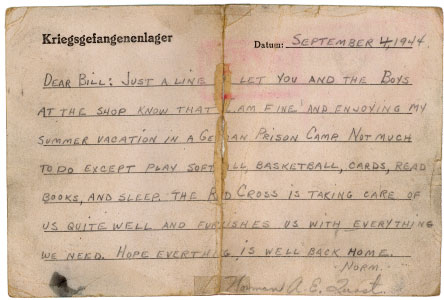 Kriegsgefangenenlager Datum: SEPTEMBER 4, 1944.
DEAR BILL: JUST A LINE LET YOU AND THE BOYS
AT THE SHOP KNOW THAT I AM FINE AND ENJOYING MY
SUMMER VACATION IN A GERMAN PRISON CAMP. NOT MUCH
TO DO EXCEPT PLAY SOFTBALL BASKETBALL, CARDS, READ
BOOKS, AND SLEEP. THE RED CROSS IS TAKING CARE OF
US QUITE WELL AND FURNISHES US WITH EVERYTHING
WE NEED. HOPE EVERTHING IS WELL BACK HOME.
NORM.
Norman A. E. Quast